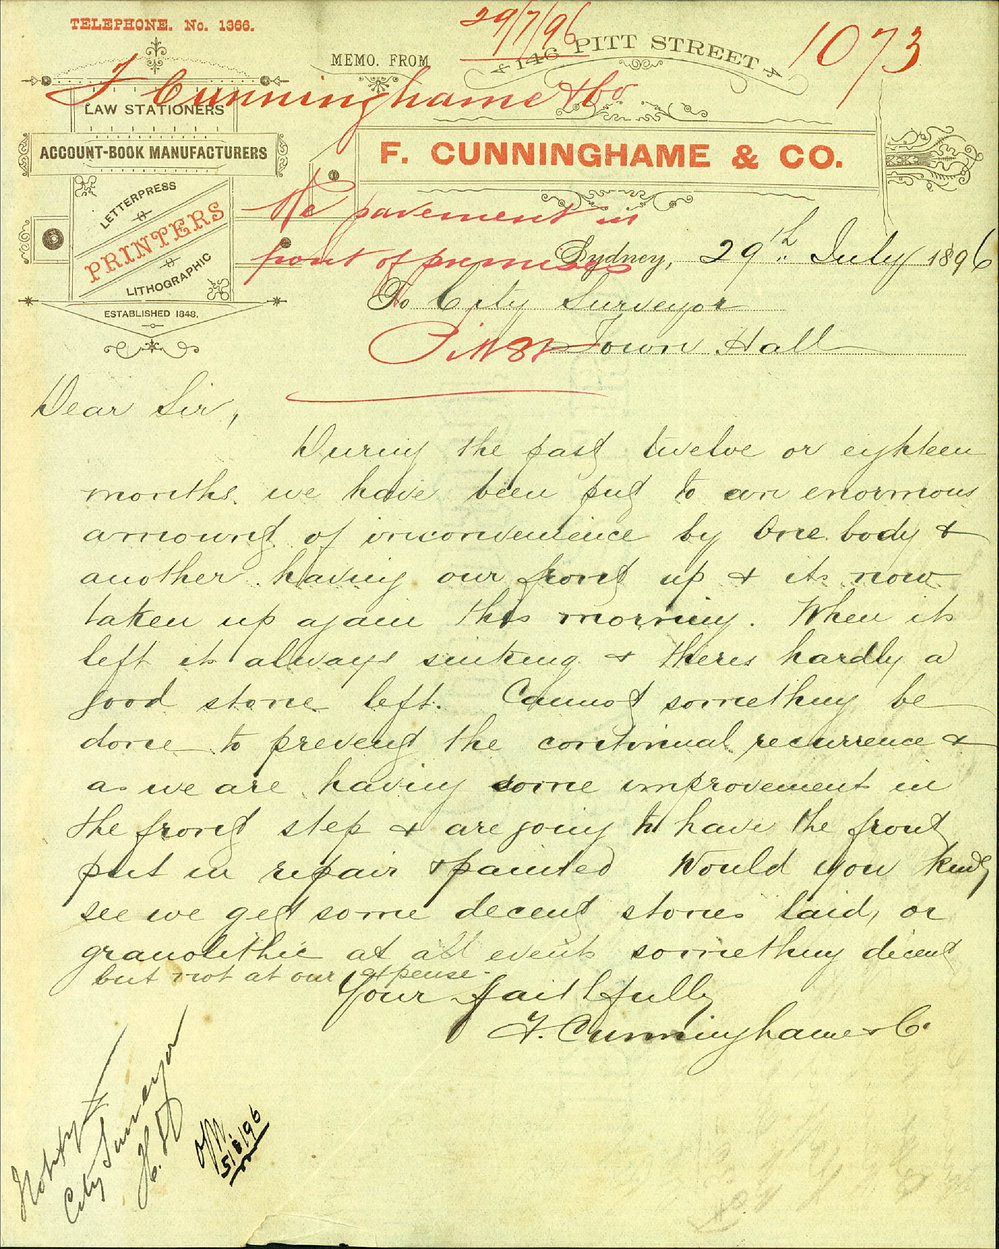 TELEPHONE. No. 1366.
29/7/96
1073
MEMO. FROM
146 PITT STREET
F Cunninghame & Co
LAW STATIONERS
ACCOUNT-BOOK MANUFACTURERS
F. CUNNINGHAME & CO.
LETTERPRESS
PRINTERS
LITHOGRAPHIC
ESTABLISHED 1848.
Re pavement in
front of premises
Sydney, 29th July 1896
To City Surveyor
Pitt St
Town Hall
Dear Sir,
During the past twelve or eighteen
months we have been put to an enormous
amount of inconvenience by one body &
another having our front up & its now
taken up again this morning. When its
left its always sinking & theres hardly a
good stone left. Cannot something be
done to prevent the continual recurrence &
as we are having some improvement in
the front step & are going to have the front
put in repair & painted Would you kindly
see we get some decent stones laid, or
granolithic at all events something decent
but not at our expense.
Your Faithfully
F. Cunninghame & Co.
City Surveyor
5/8/96